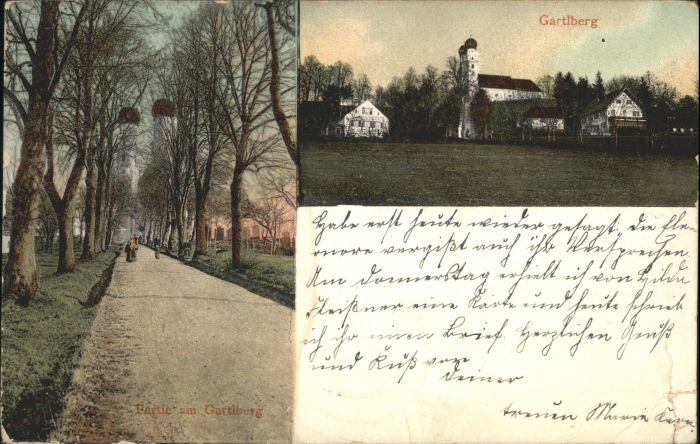 Gartlberg
Partie am Gartlberg
Habe erst heute wieder gesagt, die Ele-
onore vergißt auch ihr Versprechen.
Am Donnerstag erhielt ich von Hilda
Fleißner eine Karte und heute schrieb
ich ihr einen Brief. Herzlichen Gruß
und Kuß von
Deiner
treuen Marie